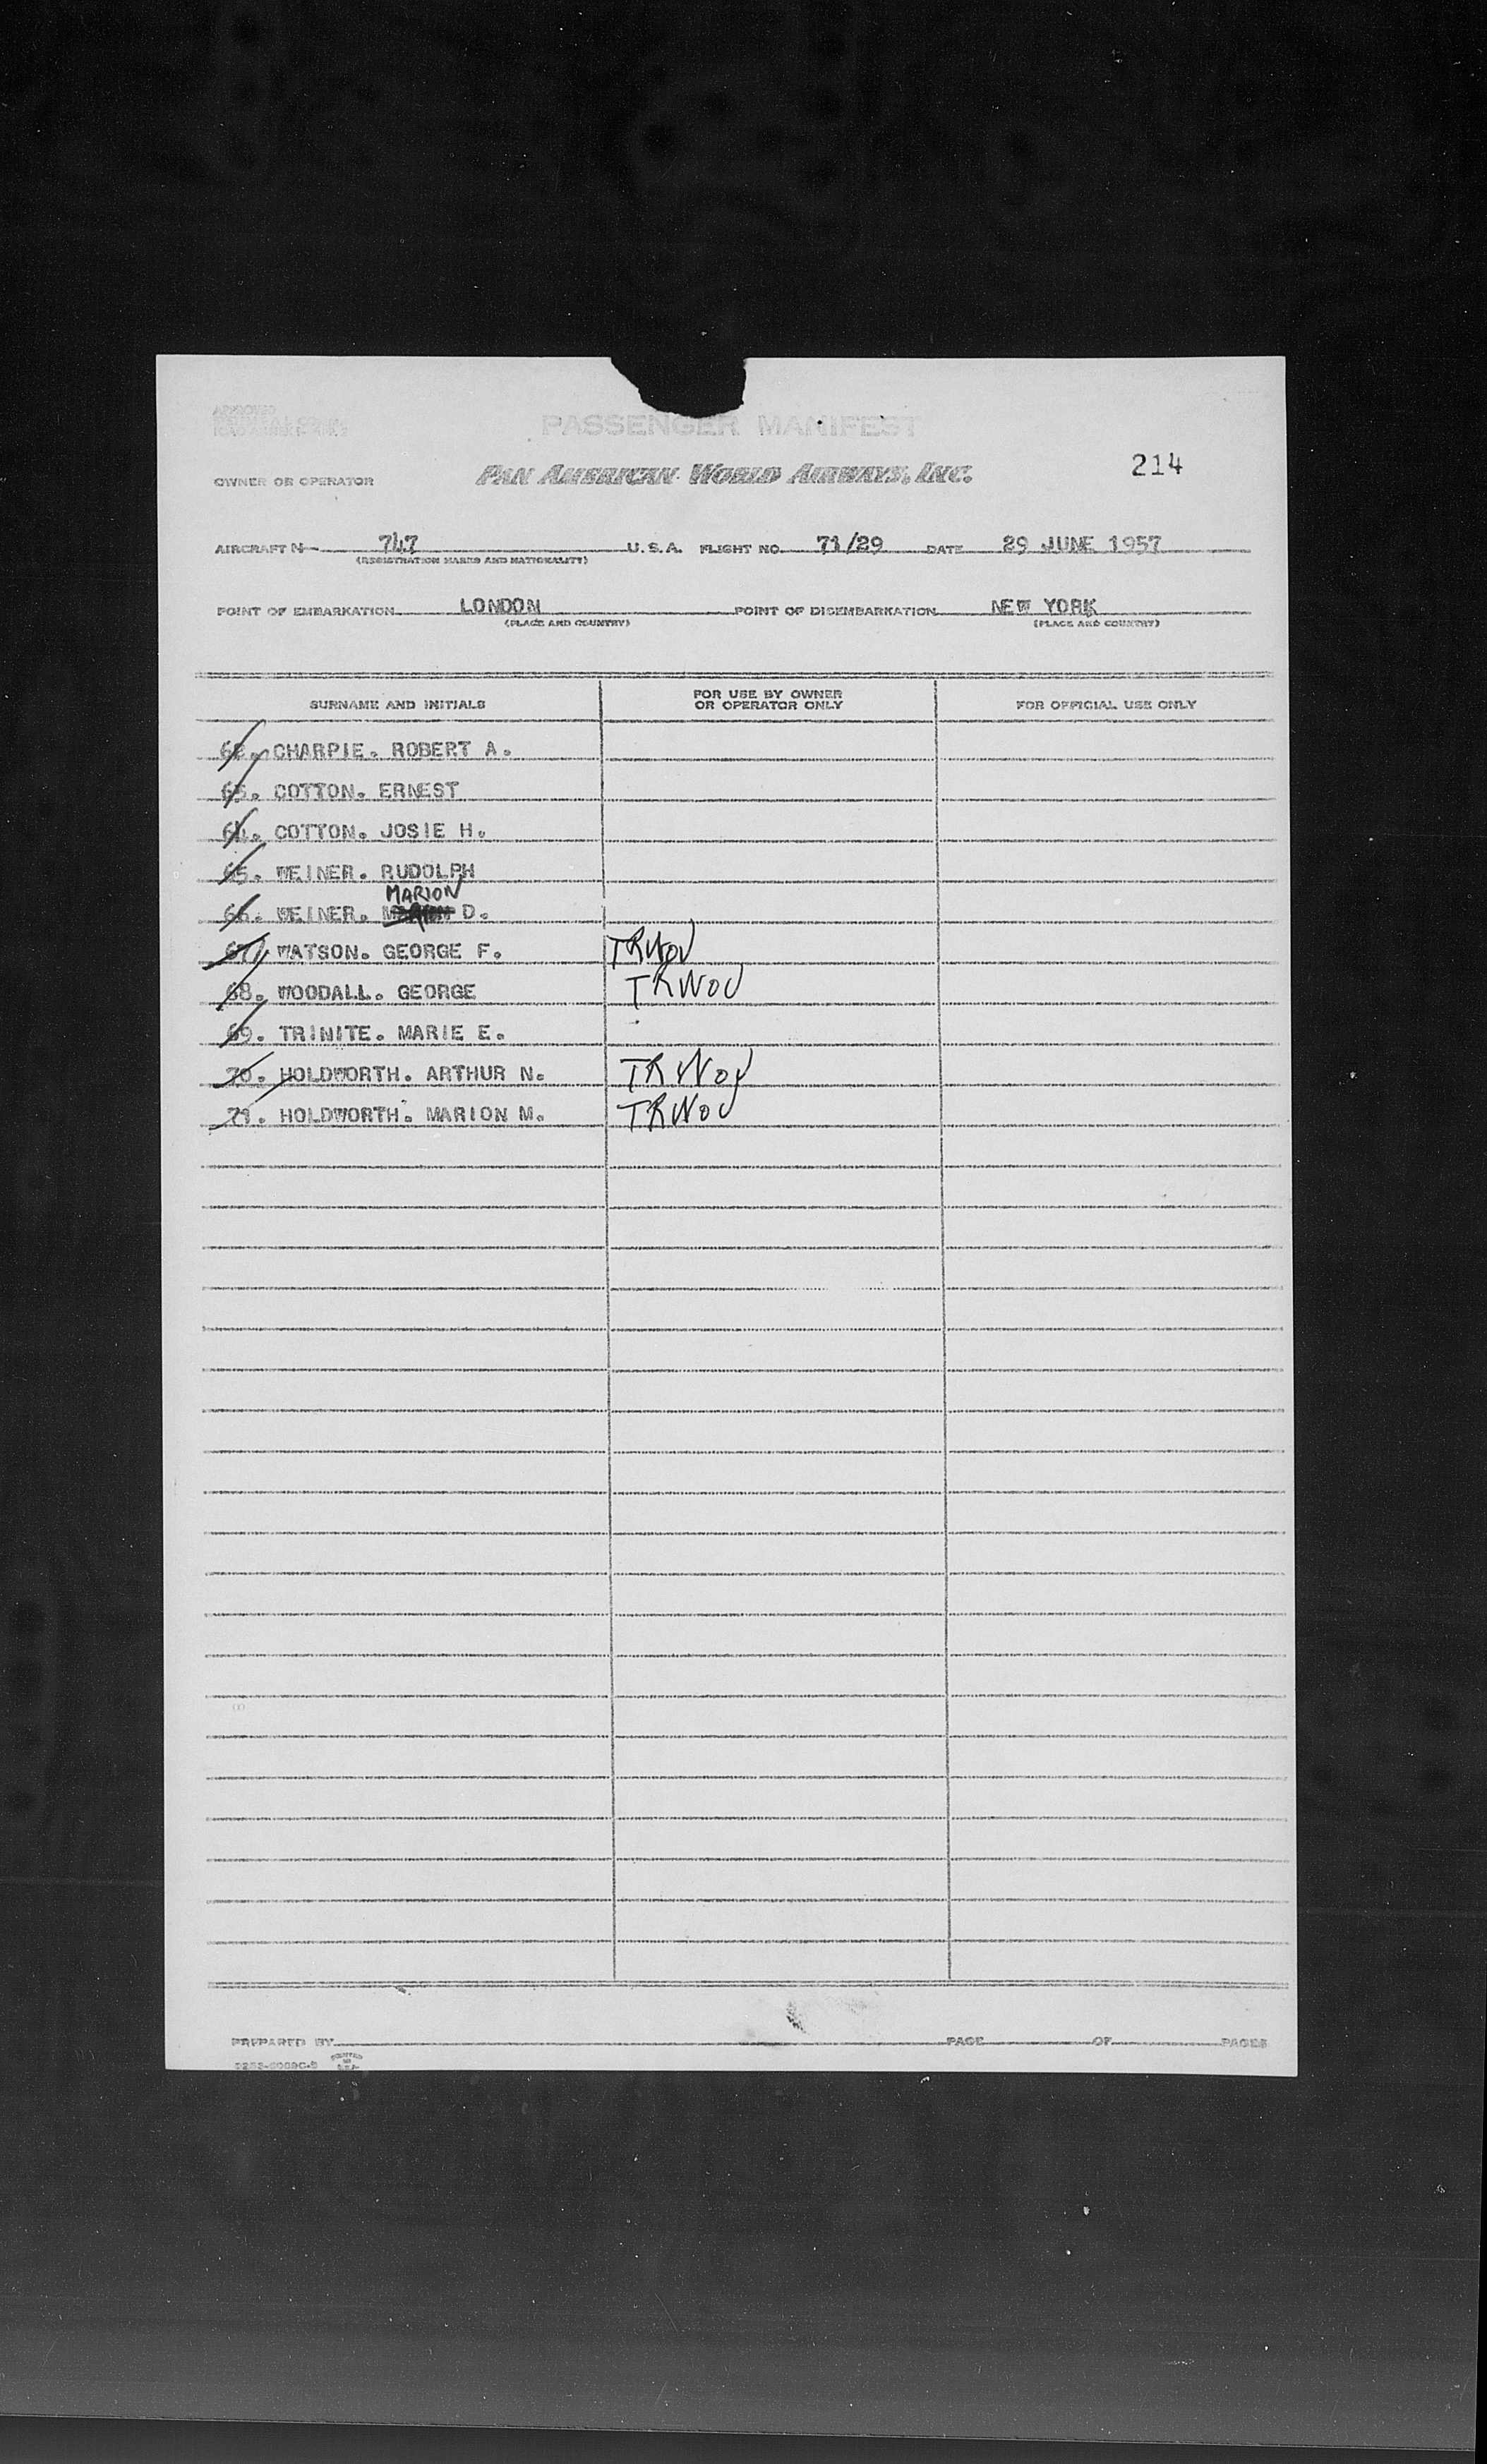 APPROVED
PASSENGER MANIFEST
214
OWNER OR OPERATOR PAN AMERICAN WORLD AIRWAYS, INC.
AIRCRAFT N 747 U. S. A. FLIGHT NO. 71/29 DATE 29 JUNE 1957
(REGISTRATION MARKS AND NATIONALITY)
POINT OF EMBARKATION LONDON POINT OF DISEMBARKATION NEW YORK
(PLACE AND COUNTRY) (PLACE AND COUNTRY)
SURNAME AND INITIALS FOR USE BY OWNER OR OPERATOR ONLY FOR OFFICIAL USE ONLY
62. CHARPIE. ROBERT A.
63. COTTON. ERNEST
64. COTTON. JOSIE H.
65. WEINER. RUDOLPH
MARION
66. WEINER. D.
67. WATSON. GEORGE F. TRWOV
68. WOODALL. GEORGE TRWOV
69. TRINITE. MARIE E.
70. HOLDWORTH. ARTHUR N. TRWOV
71. HOLDWORTH. MARION M. TRWOV
PREPARED BY PAGE OF PAGES